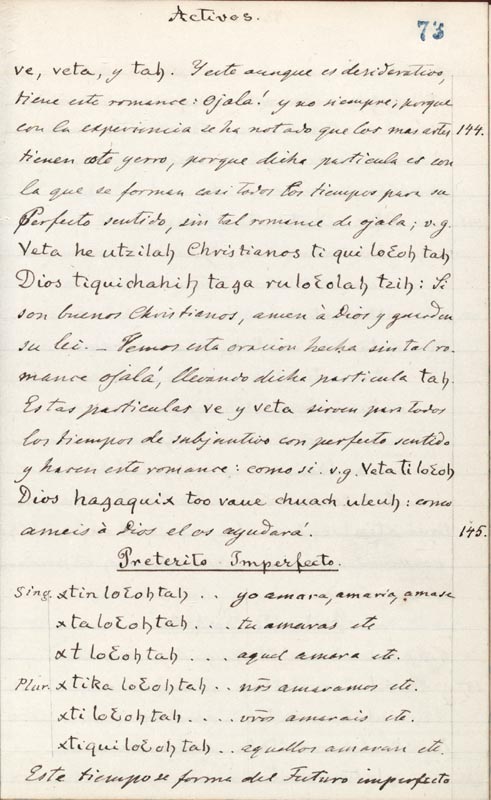 Activos.
73
ve, veta, y taḥ. Y este aunque es desiderativo,
tiene este romance: Ojala! y no siempre, porque
con la experiencia se ha notado que los mas artes 144.
tienen este yerro, porque dicha particula es con
la que se forman casi todos los tiempos para su
Perfecto sentido, sin tal romance de ojala; v.g.
Veta he utzilaḥ Christianos ti qui loƐoḥ taḥ
Dios tiquichahiḥ taʒa ruloƐolaḥ tziḥ: Si
son buenos Christianos, amen à Dios y guarden
su lei. – Vemos esta oracion hecha sin tal ro-
mance ojalá, llevando dicha particula taḥ.
Estas particulas ve y veta sirven para todos
los tiempos de subjuntivo con perfecto sentido
y hacen este romance: como si. v.g. Veta ti loƐoḥ
Dios haʒaquix too vave chuach uleuḥ: como
ameis à Dios el os ayudará. 145.
Preterito Imperfecto.
Sing. xtin loƐoḥ taḥ . . yo amara, amaria, amase
xta loƐoḥ taḥ . . . tu amaras etc
xt loƐoḥ taḥ . . . aquel amara etc.
Plur. xtika loƐoḥ taḥ . . nr̃os amaramos etc.
xti loƐoḥ taḥ . . . . vr̃os amarais etc.
xtiqui loƐoḥ taḥ . . aquellos amaran etc.
Este tiempo se forma del Futuro imperfecto